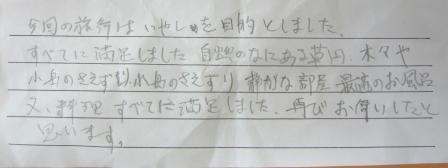 今回の旅行はいやしを目的としました。
すべてに満足しました 自然のなかにある草円、木々や
小鳥のさえずり小鳥のさえずり 静かな部屋 最高のお風呂
又、料理 すべてに満足しました。再びお伺いしたいと
思います。